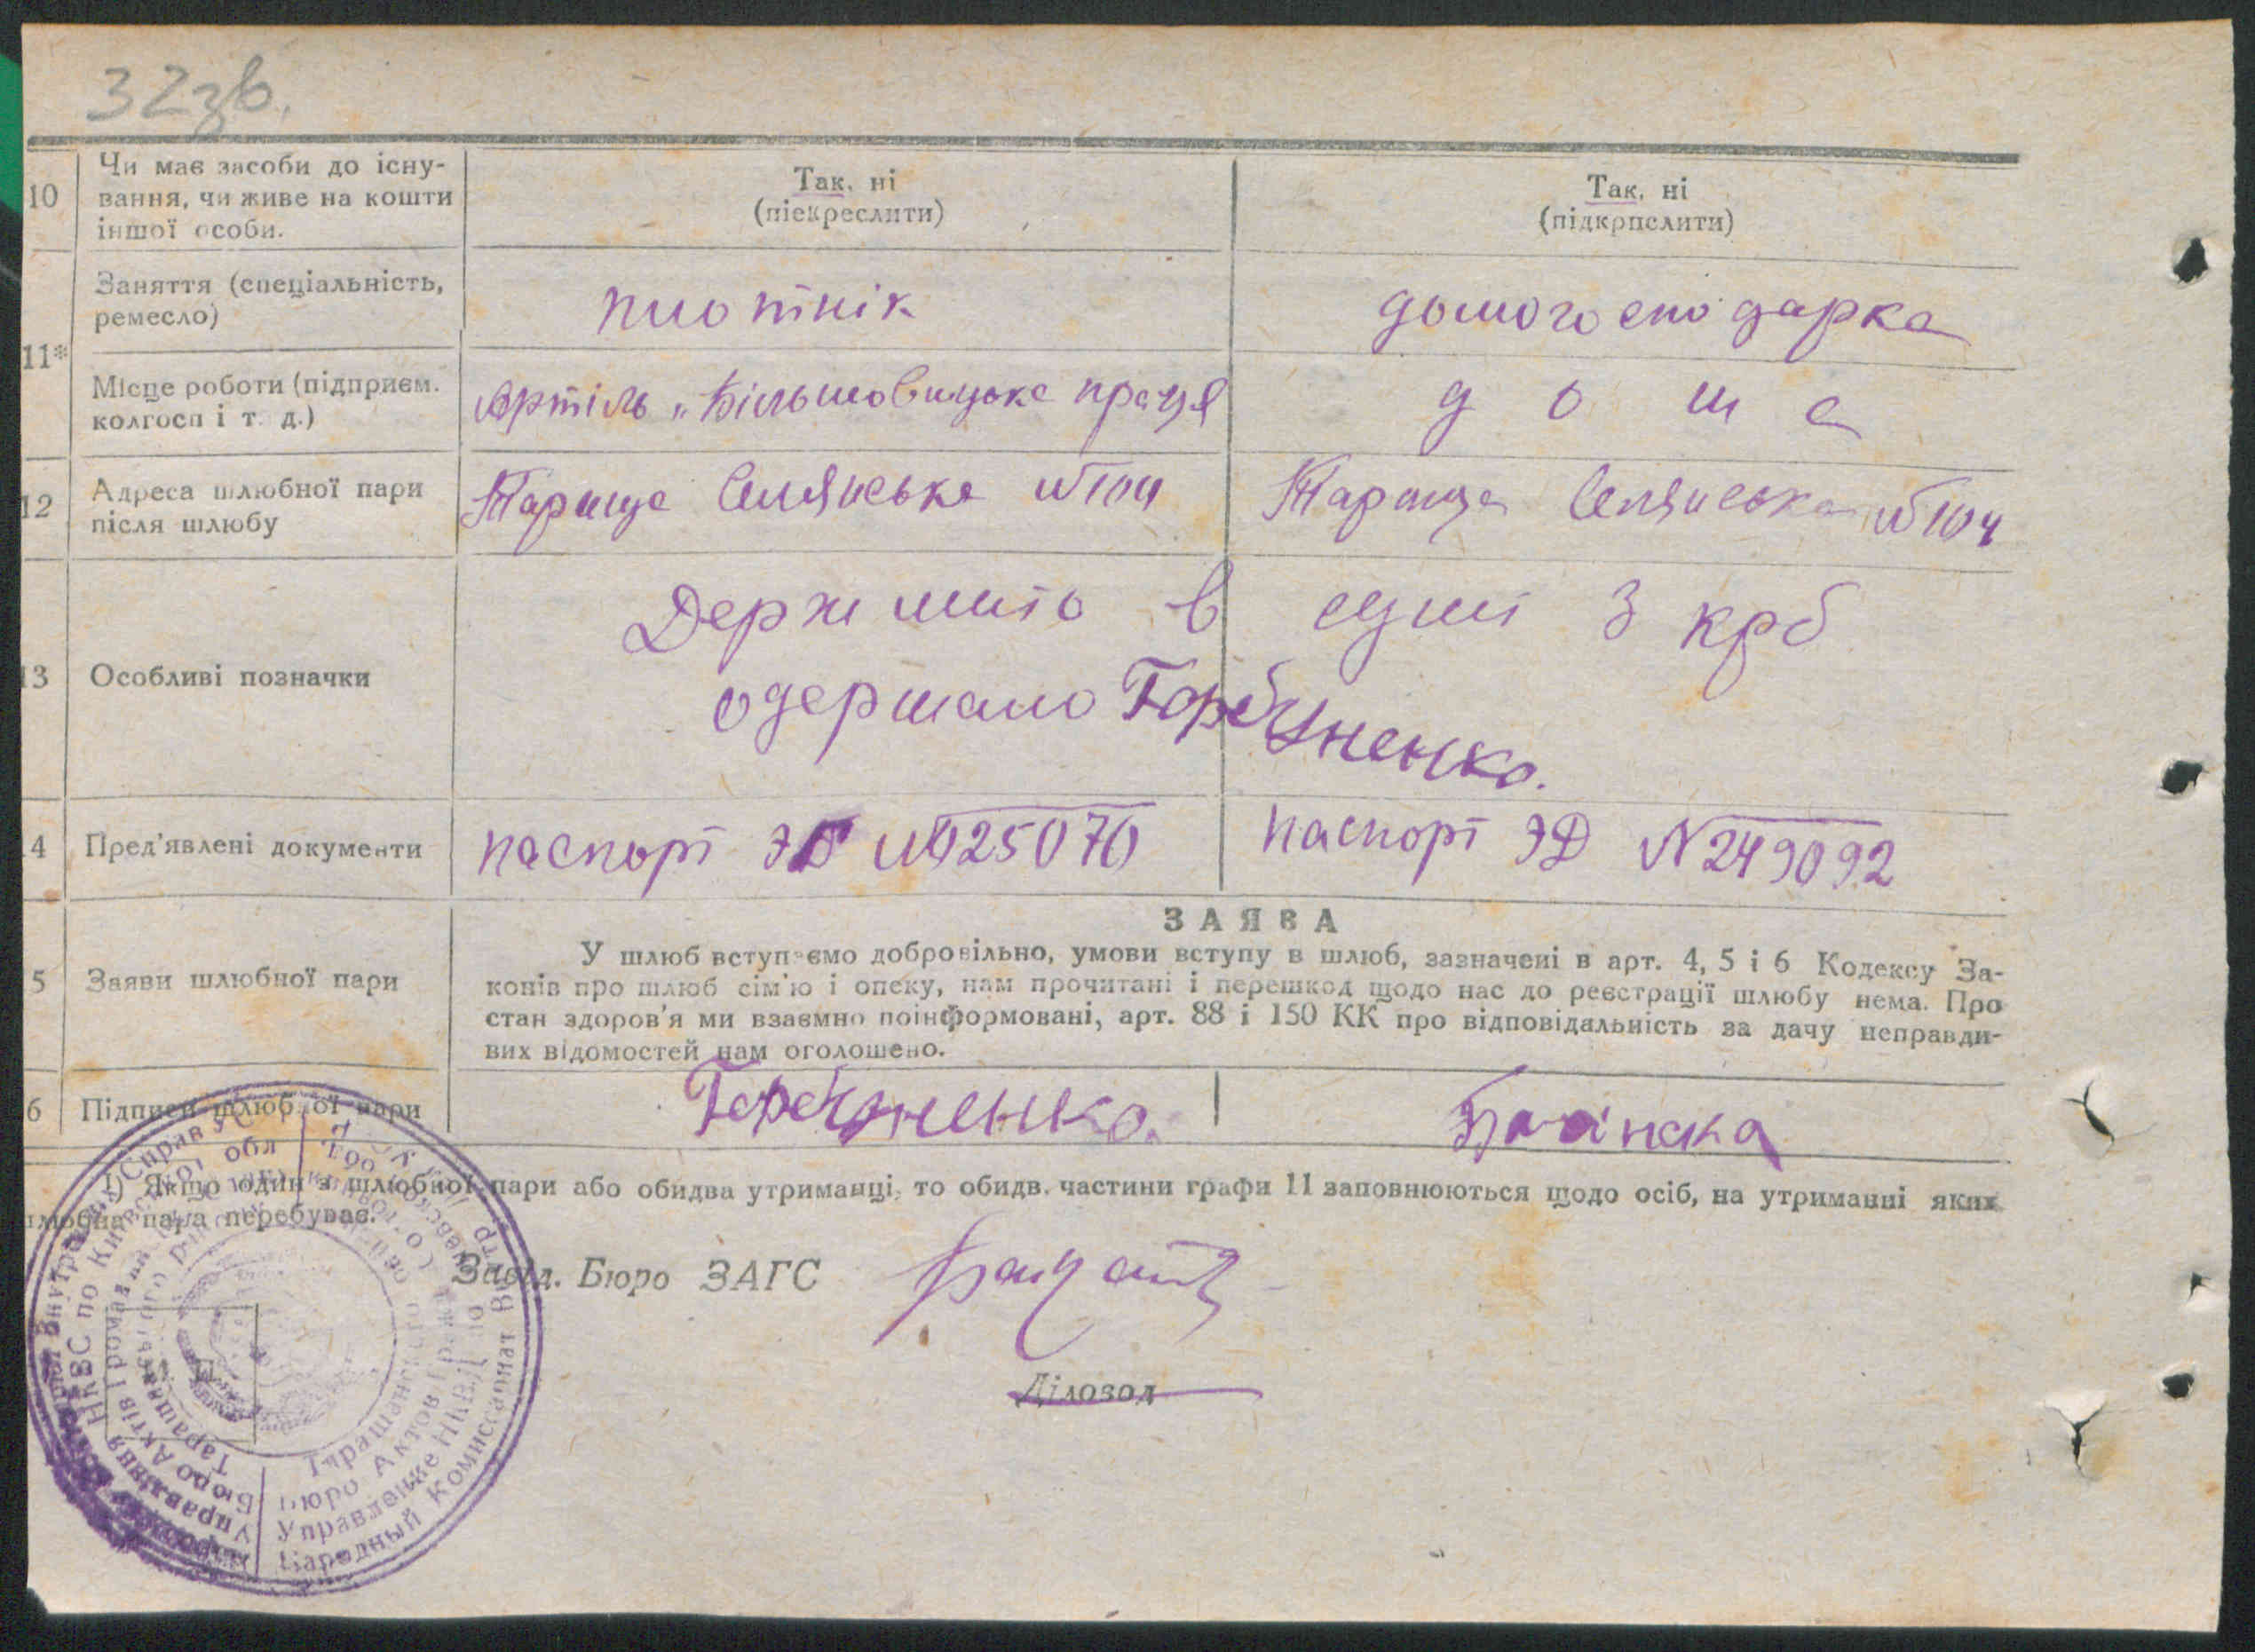 32зв.
10
Чи має засоби до існу-
вання, чи живе на кошти
іншої особи.
Так, ні
(піекреслити)
Так, ні
(підкрпслити)
11*
Заняття (спеціальність,
ремесло)
плотнік
домогосподарка
Місце роботи (підприєм.
колгосп і т. д.)
Артіль „Більшовицька праця
дома
12
Адреса шлюбної пари
після шлюбу
Тараща Селянська №104
Тараща Селянська №104
13
Особливі позначки
Держ мито в сумі 3 крб
одержано Горбуненко.
4
Пред'явлені документи
паспорт №925070
паспорт ЭД №249092
5
Заяви шлюбної пари
ЗАЯВА
У шлюб вступаємо добровільно, умови вступу в шлюб, зазначені в арт. 4, 5 і 6 Кодексу За-
конів про шлюб сім'ю і опеку, нам прочитані і перешкод щодо нас до реєстрації шлюбу нема. Про
стан здоров'я ми взаємно поінформовані, арт. 88 і 150 КК про відповідальність за дачу неправди-
вих відомостей нам оголошено.
6
Підписи шлюбної пари
Горбуненко.
1) Якщо один з шлюбної пари або обидва утриманці, то обидв. частини графи 11 заповнюються щодо осіб, на утриманні яких
шлюбна пара перебуває.
Завід. Бюро ЗАГС
Діловод
НКВС по Київській обл
Управління
Бюро Актів Громадян
Таращан
Таращан
Бюро Актов Граж
Управление НКВД по
Народный Комиссариат Внутр